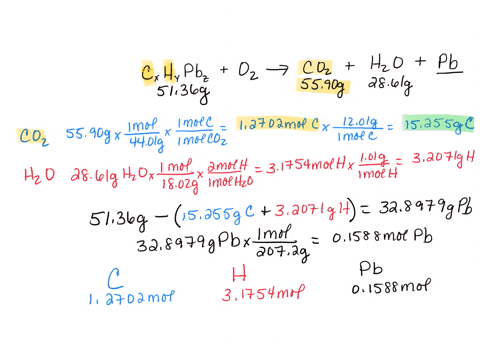 CxHyPbz + O2 → CO2 + H2O + Pb
51.36g 55.90g 28.61g
CO2 55.90g × 1mol/44.01g × 1molC/1molCO2 = 1.2702molC × 12.01g/1molC = 15.255gC
H2O 28.61gH2O × 1mol/18.02g × 2molH/1molH2O = 3.1754molH × 1.01g/1molH = 3.2071gH
51.36g − (15.255gC + 3.2071gH) = 32.8979gPb
32.8979gPb × 1mol/207.2g = 0.1588molPb
C H Pb
1.2702mol 3.1754mol 0.1588mol